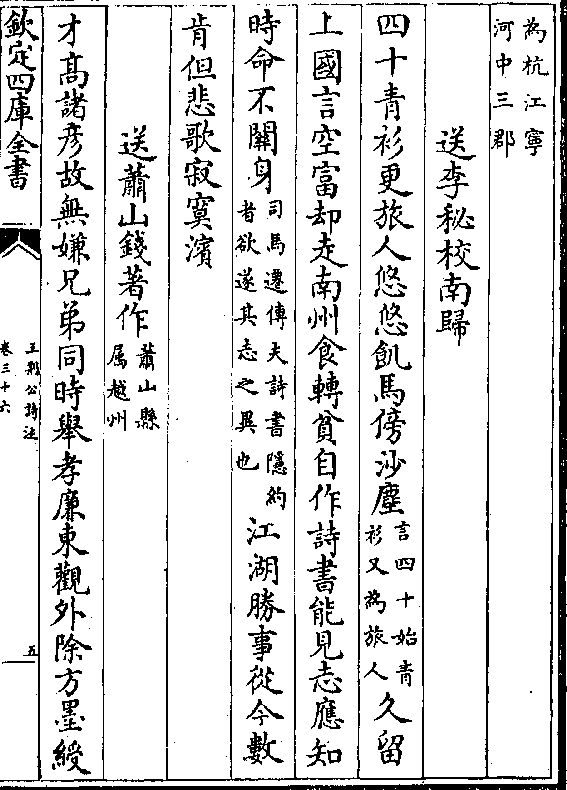 為杭江寧
河中三郡
送李秘校南歸
四十青衫更旅人悠悠飢馬傍沙塵
言四十始青
衫又為旅人
久留
上國言空富却走南州食轉貧自作詩書能見志應知
時命不關身
司馬遷傳夫詩書隱約
者欲遂其志之異也
江湖勝事從今數
肯但悲歌寂寞濱
送蕭山錢著作
蕭山縣
屬越州
才髙諸彦故無嫌兄弟同時舉孝廉東觀外除方墨綬
欽定四庫全書
王荆公詩注
卷三十六
五